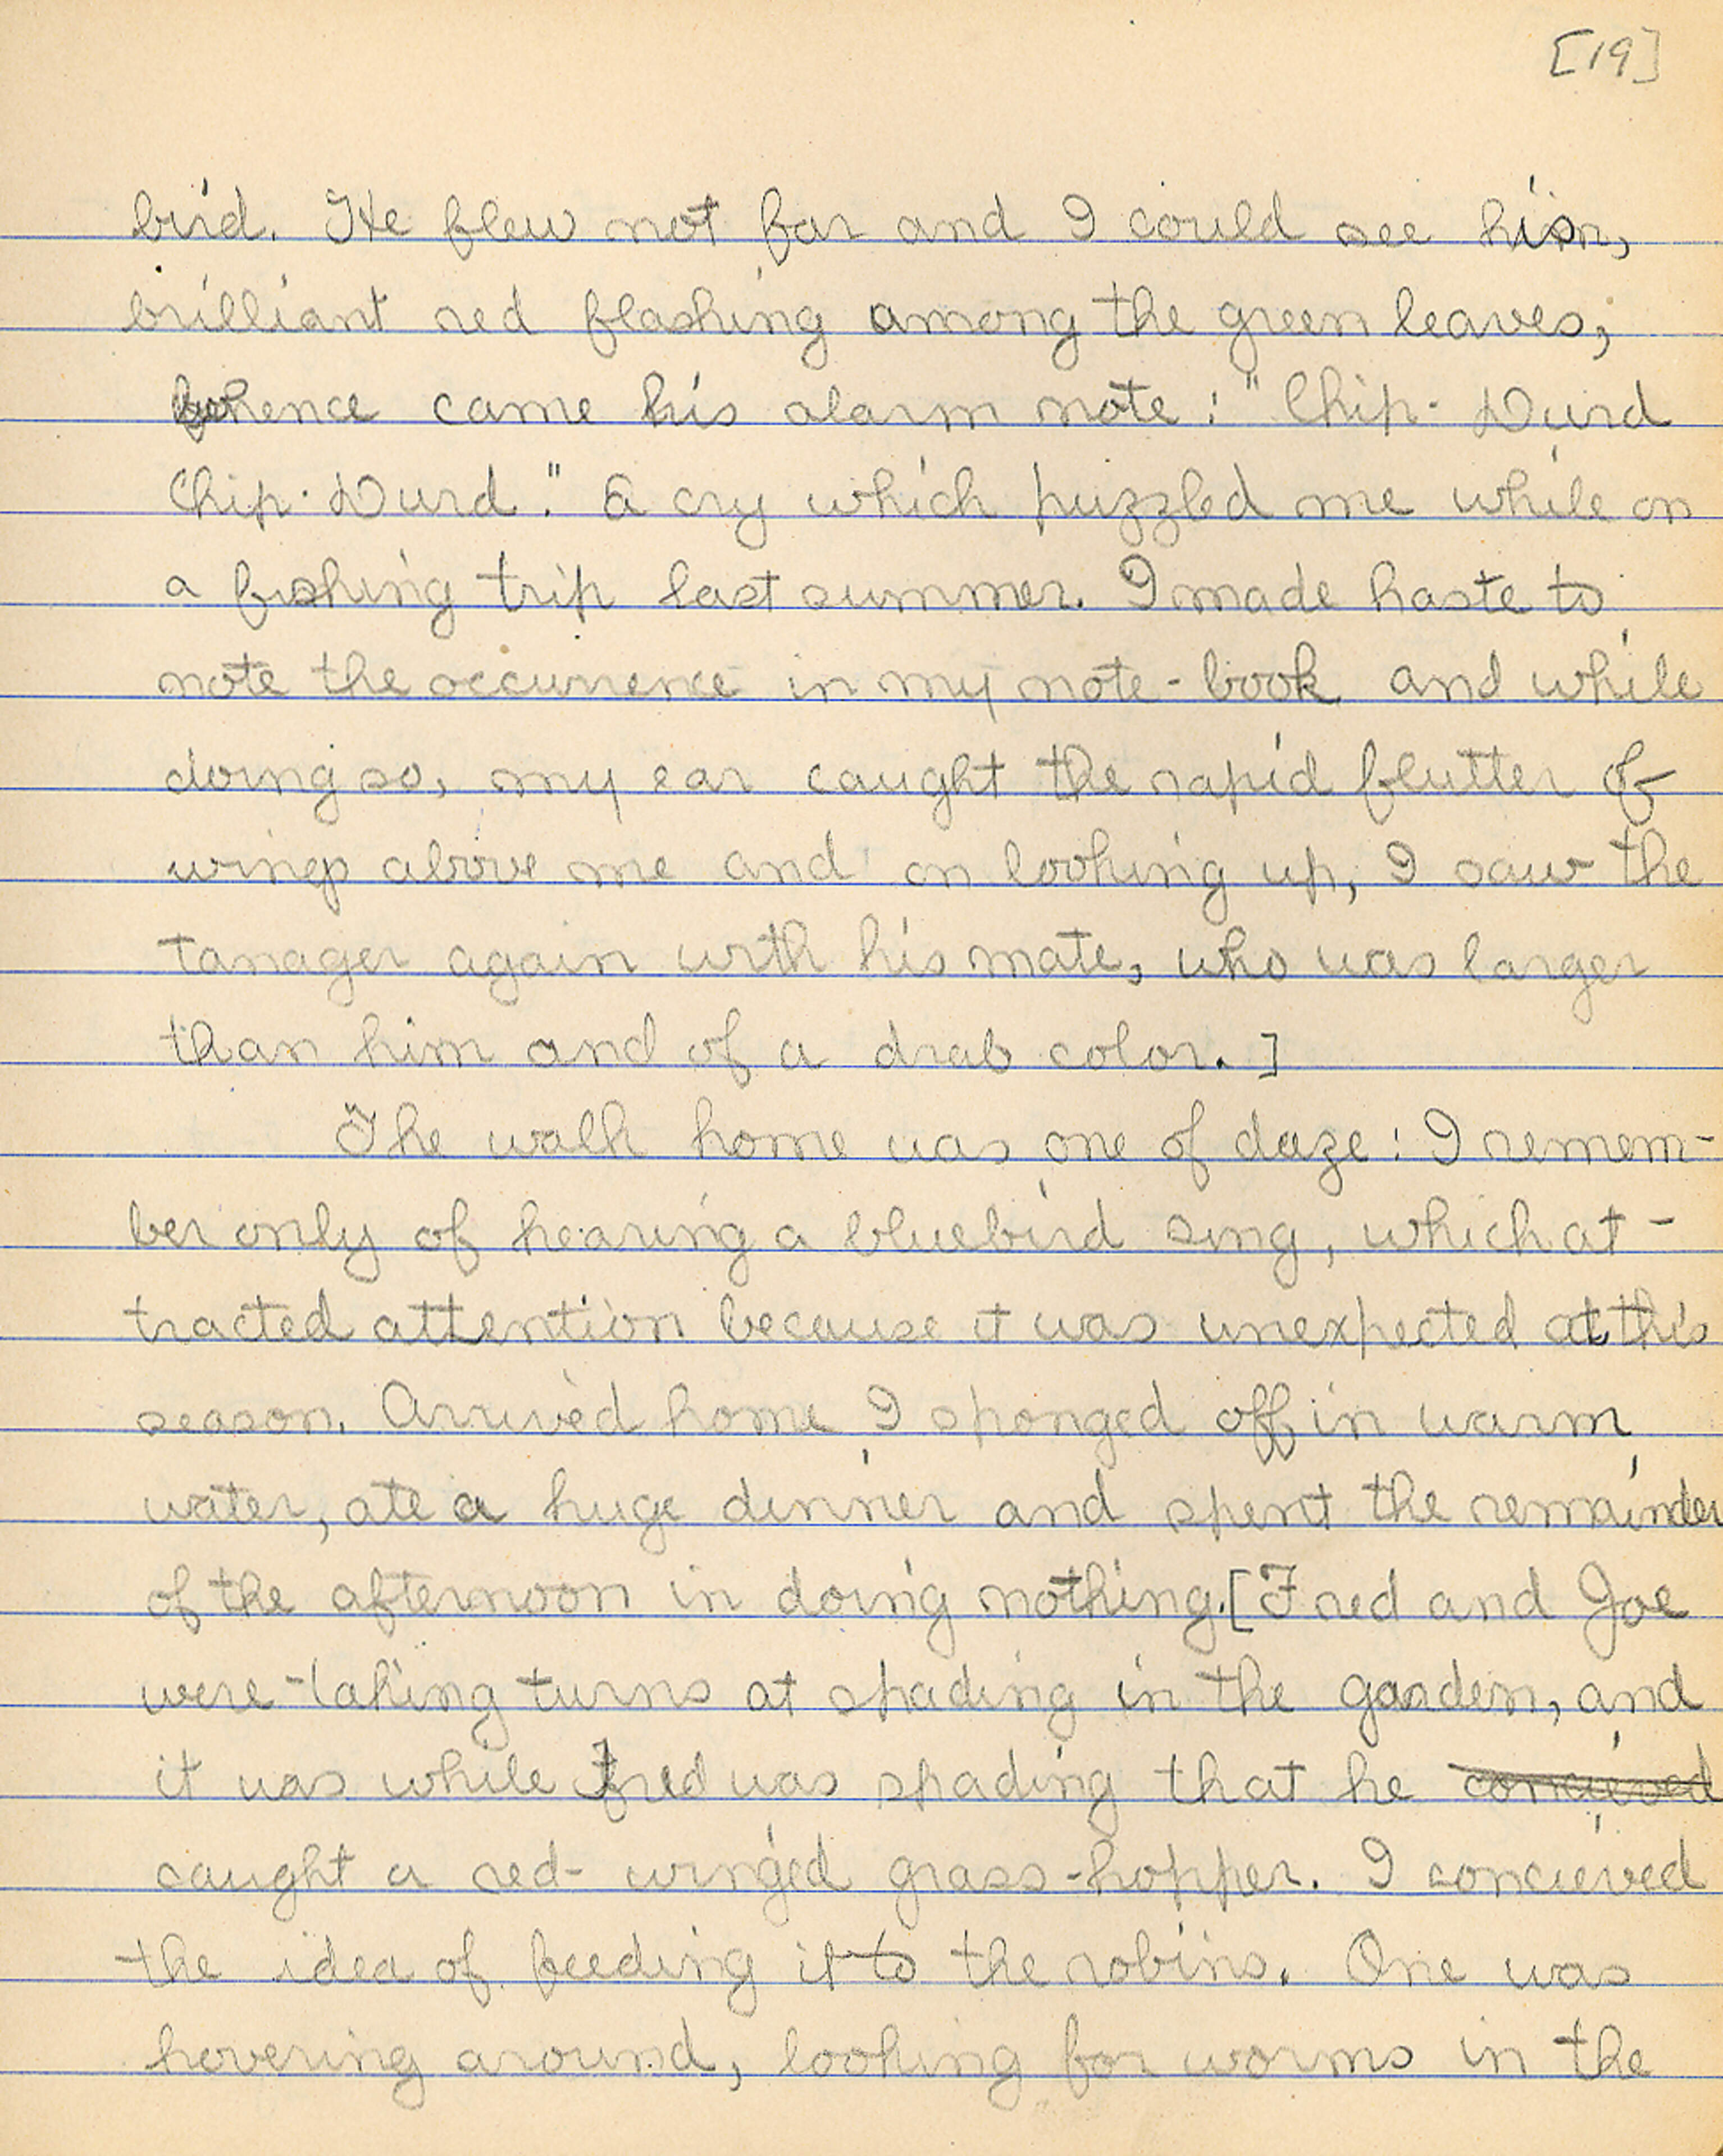 [19]
bird. The flew not far and I could see his,
brilliant red flashing among the green leaves,
whence came his alarm note: "Chip-Durd
Chip-Durd." A cry which puzzled me while on
a fishing trip last summer. I made haste to
note the occurrence in my note-book and while
doing so, my ear caught the rapid flutter of
wings above me and on looking up, I saw the
tanager again with his mate, who was larger
than him and of a drab color.]
The walk home was one of daze: I remem-
ber only of hearing a bluebird sing, which at-
tracted attention because it was unexpected at this
season. Arrived home, I sponged off in warm
water, ate a huge dinner and spent the remainder
of the afternoon in doing nothing.[Fred and Joe
were taking turns at spading in the garden, and
it was while Fred was spading that he concieved
caught a red-winged grass-hopper. I concieved
the idea of feeding it to the robins. One was
hovering around, looking for worms in the